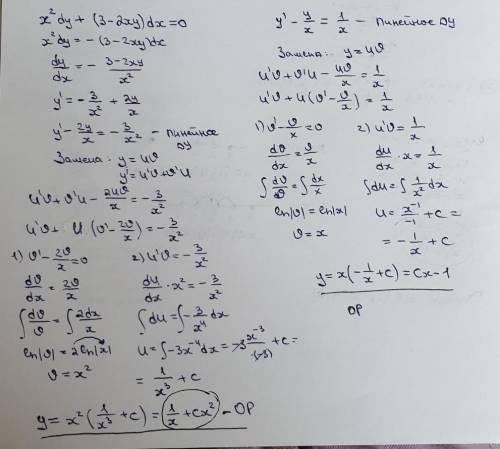 x²dy + (3-2xy)dx=0
x²dy = -(3-2xy)dx
dy/dx = - (3-2xy)/x²
y' = -3/x² + 2y/x
y' - 2y/x = -3/x² - линейное ДУ
Замена: y = uϑ
y' = u'ϑ+ϑ'u
u'ϑ+ϑ'u - 2uϑ/x = -3/x²
u'ϑ + u(ϑ' - 2ϑ/x) = -3/x²
1) ϑ' - 2ϑ/x = 0
dϑ/dx = 2ϑ/x
∫dϑ/ϑ = ∫2dx/x
ln|ϑ| = 2ln|x|
ϑ = x²
2) u'ϑ = -3/x²
du/dx · x² = -3/x²
∫du = ∫-3/x⁴ dx
u = ∫-3x⁻⁴dx = -3x⁻³/(-3) + c =
= 1/x³ + c
y = x²(1/x³ + c) = 1/x + cx² - ОР
y' - y/x = 1/x - линейное ДУ
Замена: y = uϑ
u'ϑ + ϑ'u - uϑ/x = 1/x
u'ϑ + u(ϑ' - ϑ/x) = 1/x
1) ϑ' - ϑ/x = 0
dϑ/dx = ϑ/x
∫dϑ/ϑ = ∫dx/x
ln|ϑ| = ln|x|
ϑ = x
2) u'ϑ = 1/x
du/dx · x = 1/x
∫du = ∫1/x² dx
u = x⁻¹/-1 + c =
= -1/x + c
y = x(-1/x + c) = cx - 1
ОР